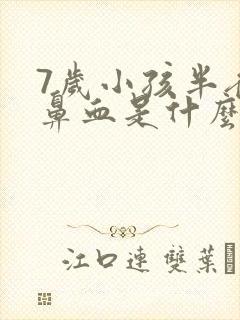 7歲小孩半夜
鼻血是什麼
江口連 雙葉